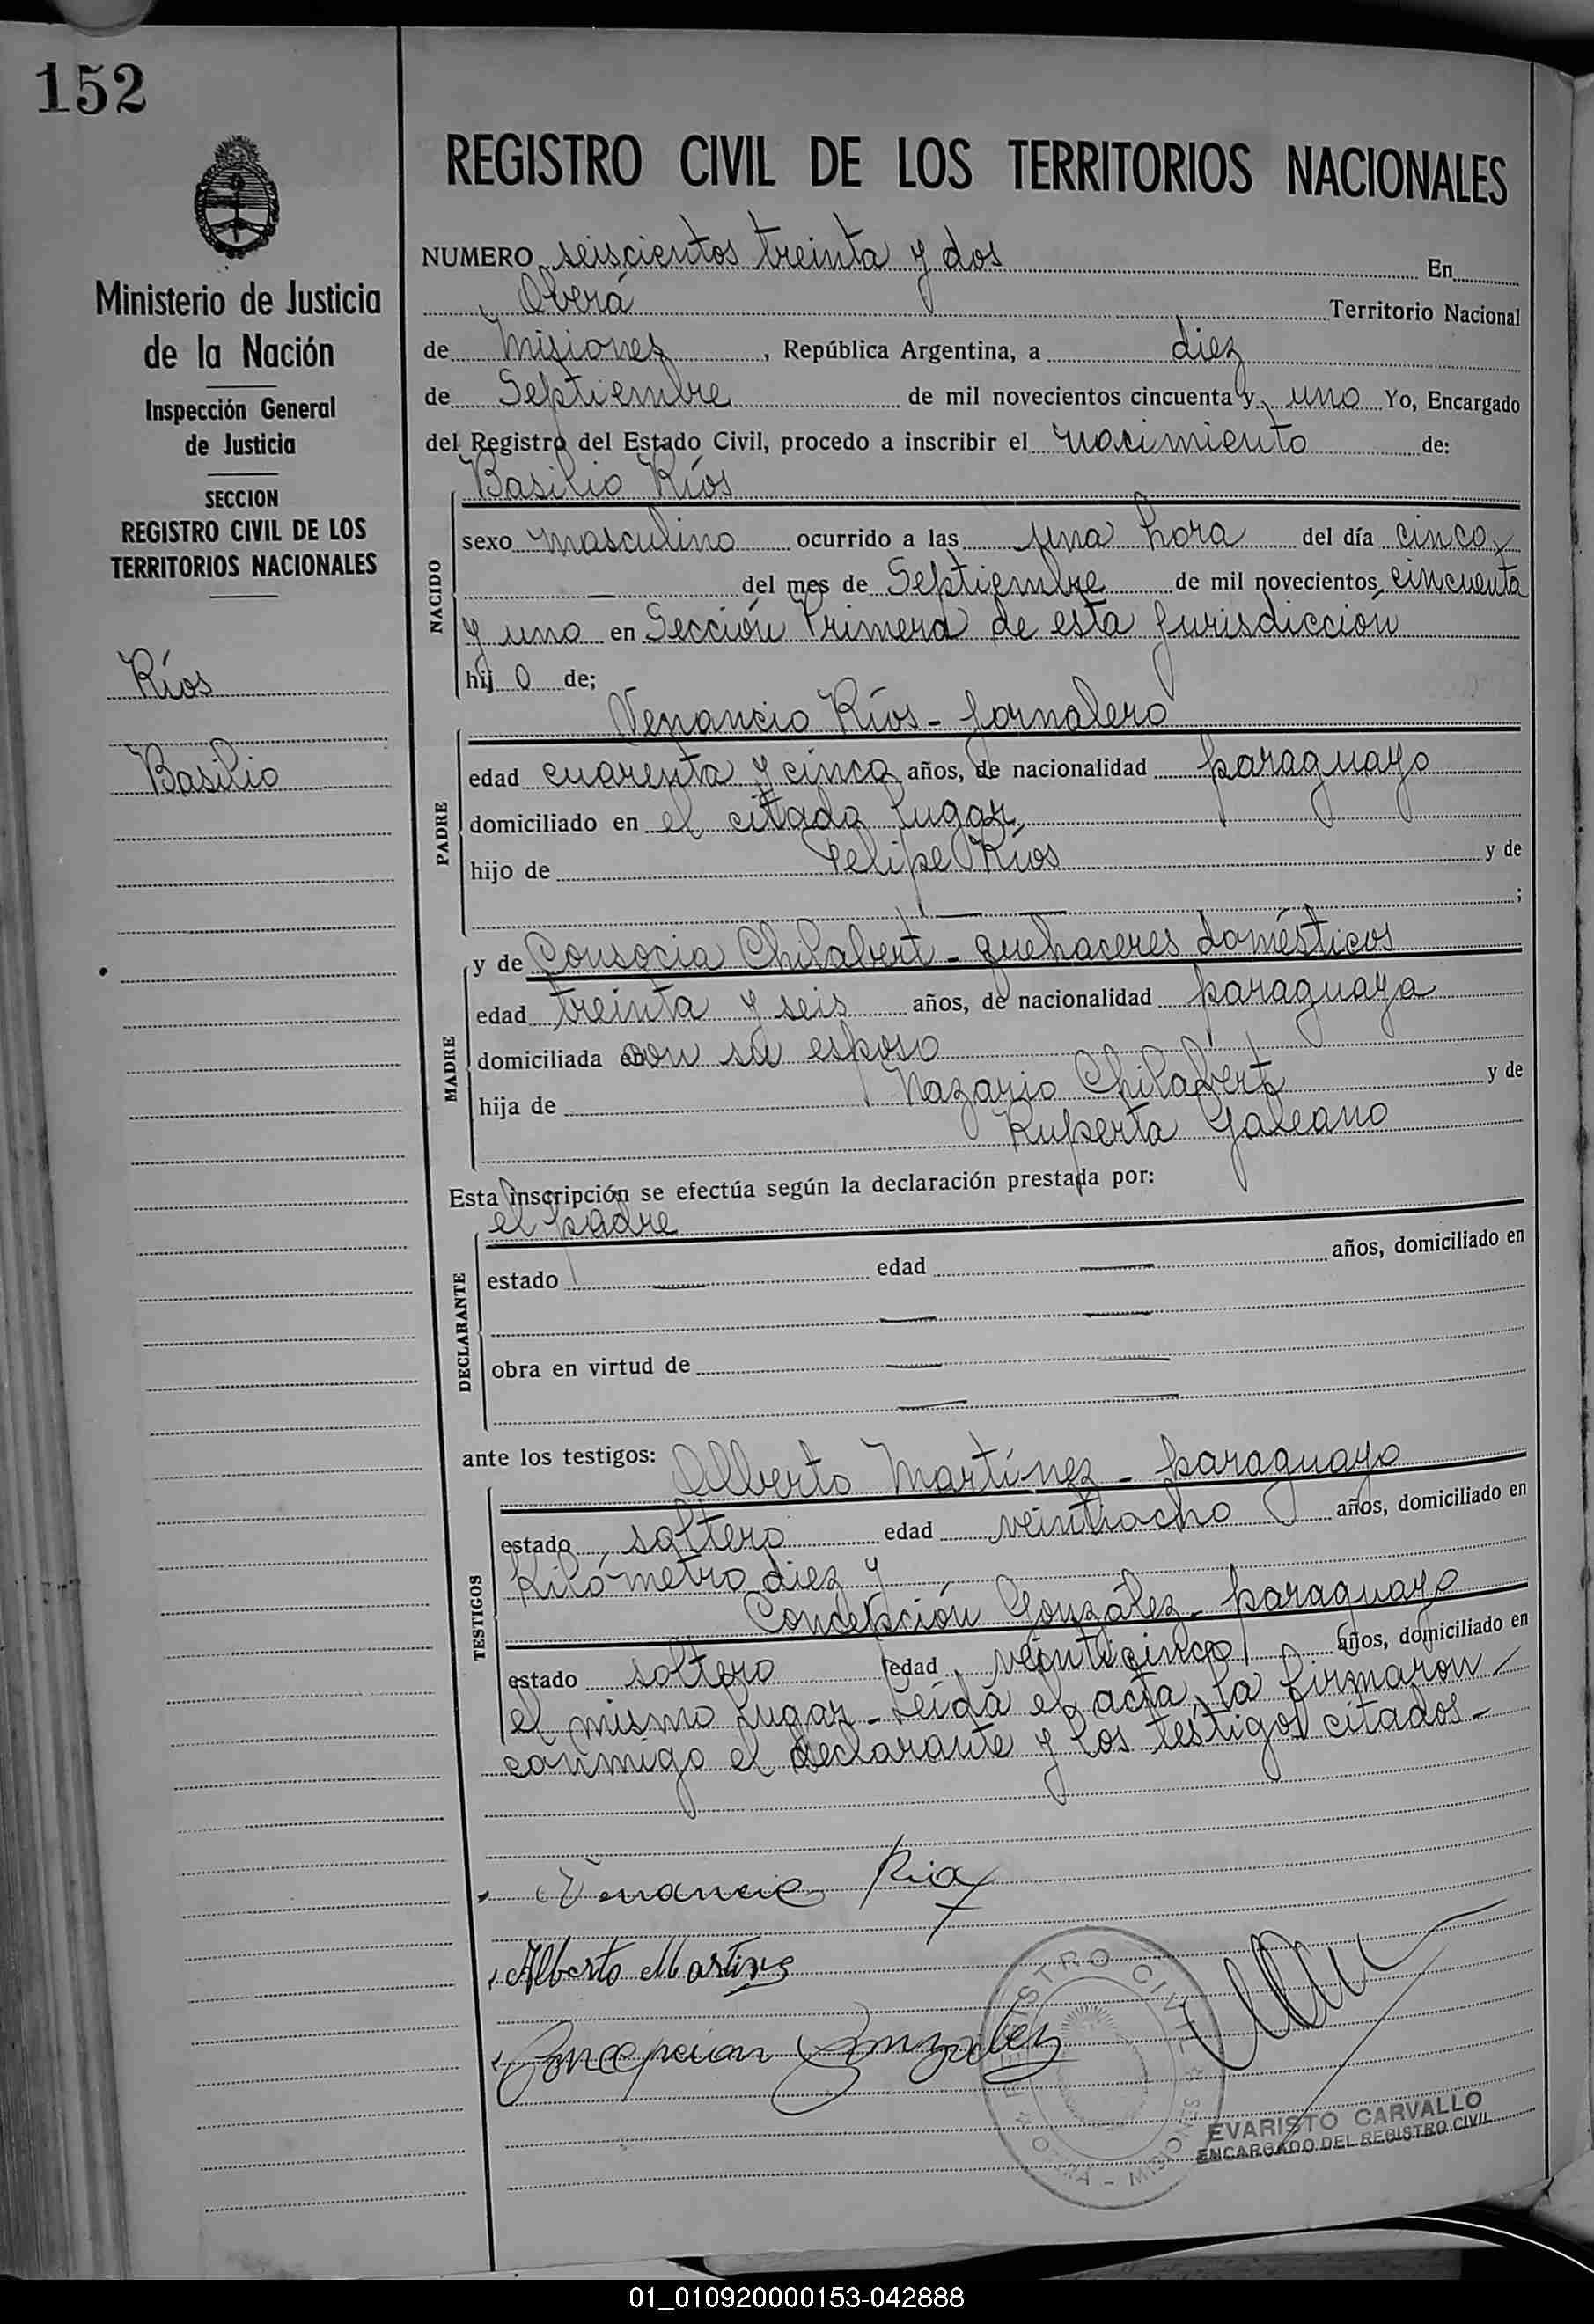 152
Ministerio de Justicia
de la Nación
Inspección General
de Justicia
SECCION
REGISTRO CIVIL DE LOS
TERRITORIOS NACIONALES
Ríos
Basilio
REGISTRO CIVIL DE LOS TERRITORIOS NACIONALES
NUMERO seiscientos treinta y dos En
Oberá Territorio Nacional
de Misiones, República Argentina, a diez
de Septiembre de mil novecientos cincuenta y uno Yo, Encargado
del Registro del Estado Civil, procedo a inscribir el nacimiento de:
Basilio Ríos
NACIDO
sexo masculino ocurrido a las una hora del día cinco
del mes de Septiembre de mil novecientos cincuenta
y uno en Sección Primera de esta jurisdicción
hij o de;
Venancio Ríos - jornalero
PADRE
edad cuarenta y cinco años, de nacionalidad paraguayo
domiciliado en el citado lugar,
hijo de Felipe Ríos y de
;
y de Consocia Chilabert - quehaceres domésticos
MADRE
edad treinta y seis años, de nacionalidad paraguaya
domiciliada con su esposo
hija de Nazario Chilabert y de
Ruperta Galeano
Esta inscripción se efectúa según la declaración prestada por:
el padre
DECLARANTE
estado edad años, domiciliado en
obra en virtud de
ante los testigos: Alberto Martínez - paraguayo
TESTIGOS
estado soltero edad veintiocho años, domiciliado en
Kilómetro diez y
Concepción González - paraguayo
estado soltero edad veinticinco años, domiciliado en
el mismo lugar - Leída el acta, la firmaron -
conmigo el declarante y los testigos citados -
Venancio
Alberto Martines
Concepcion Gonzalez
REGISTRO CIVIL
OBERA - MISIONES
EVARISTO CARVALLO
ENCARGADO DEL REGISTRO CIVIL
01_010920000153-042888